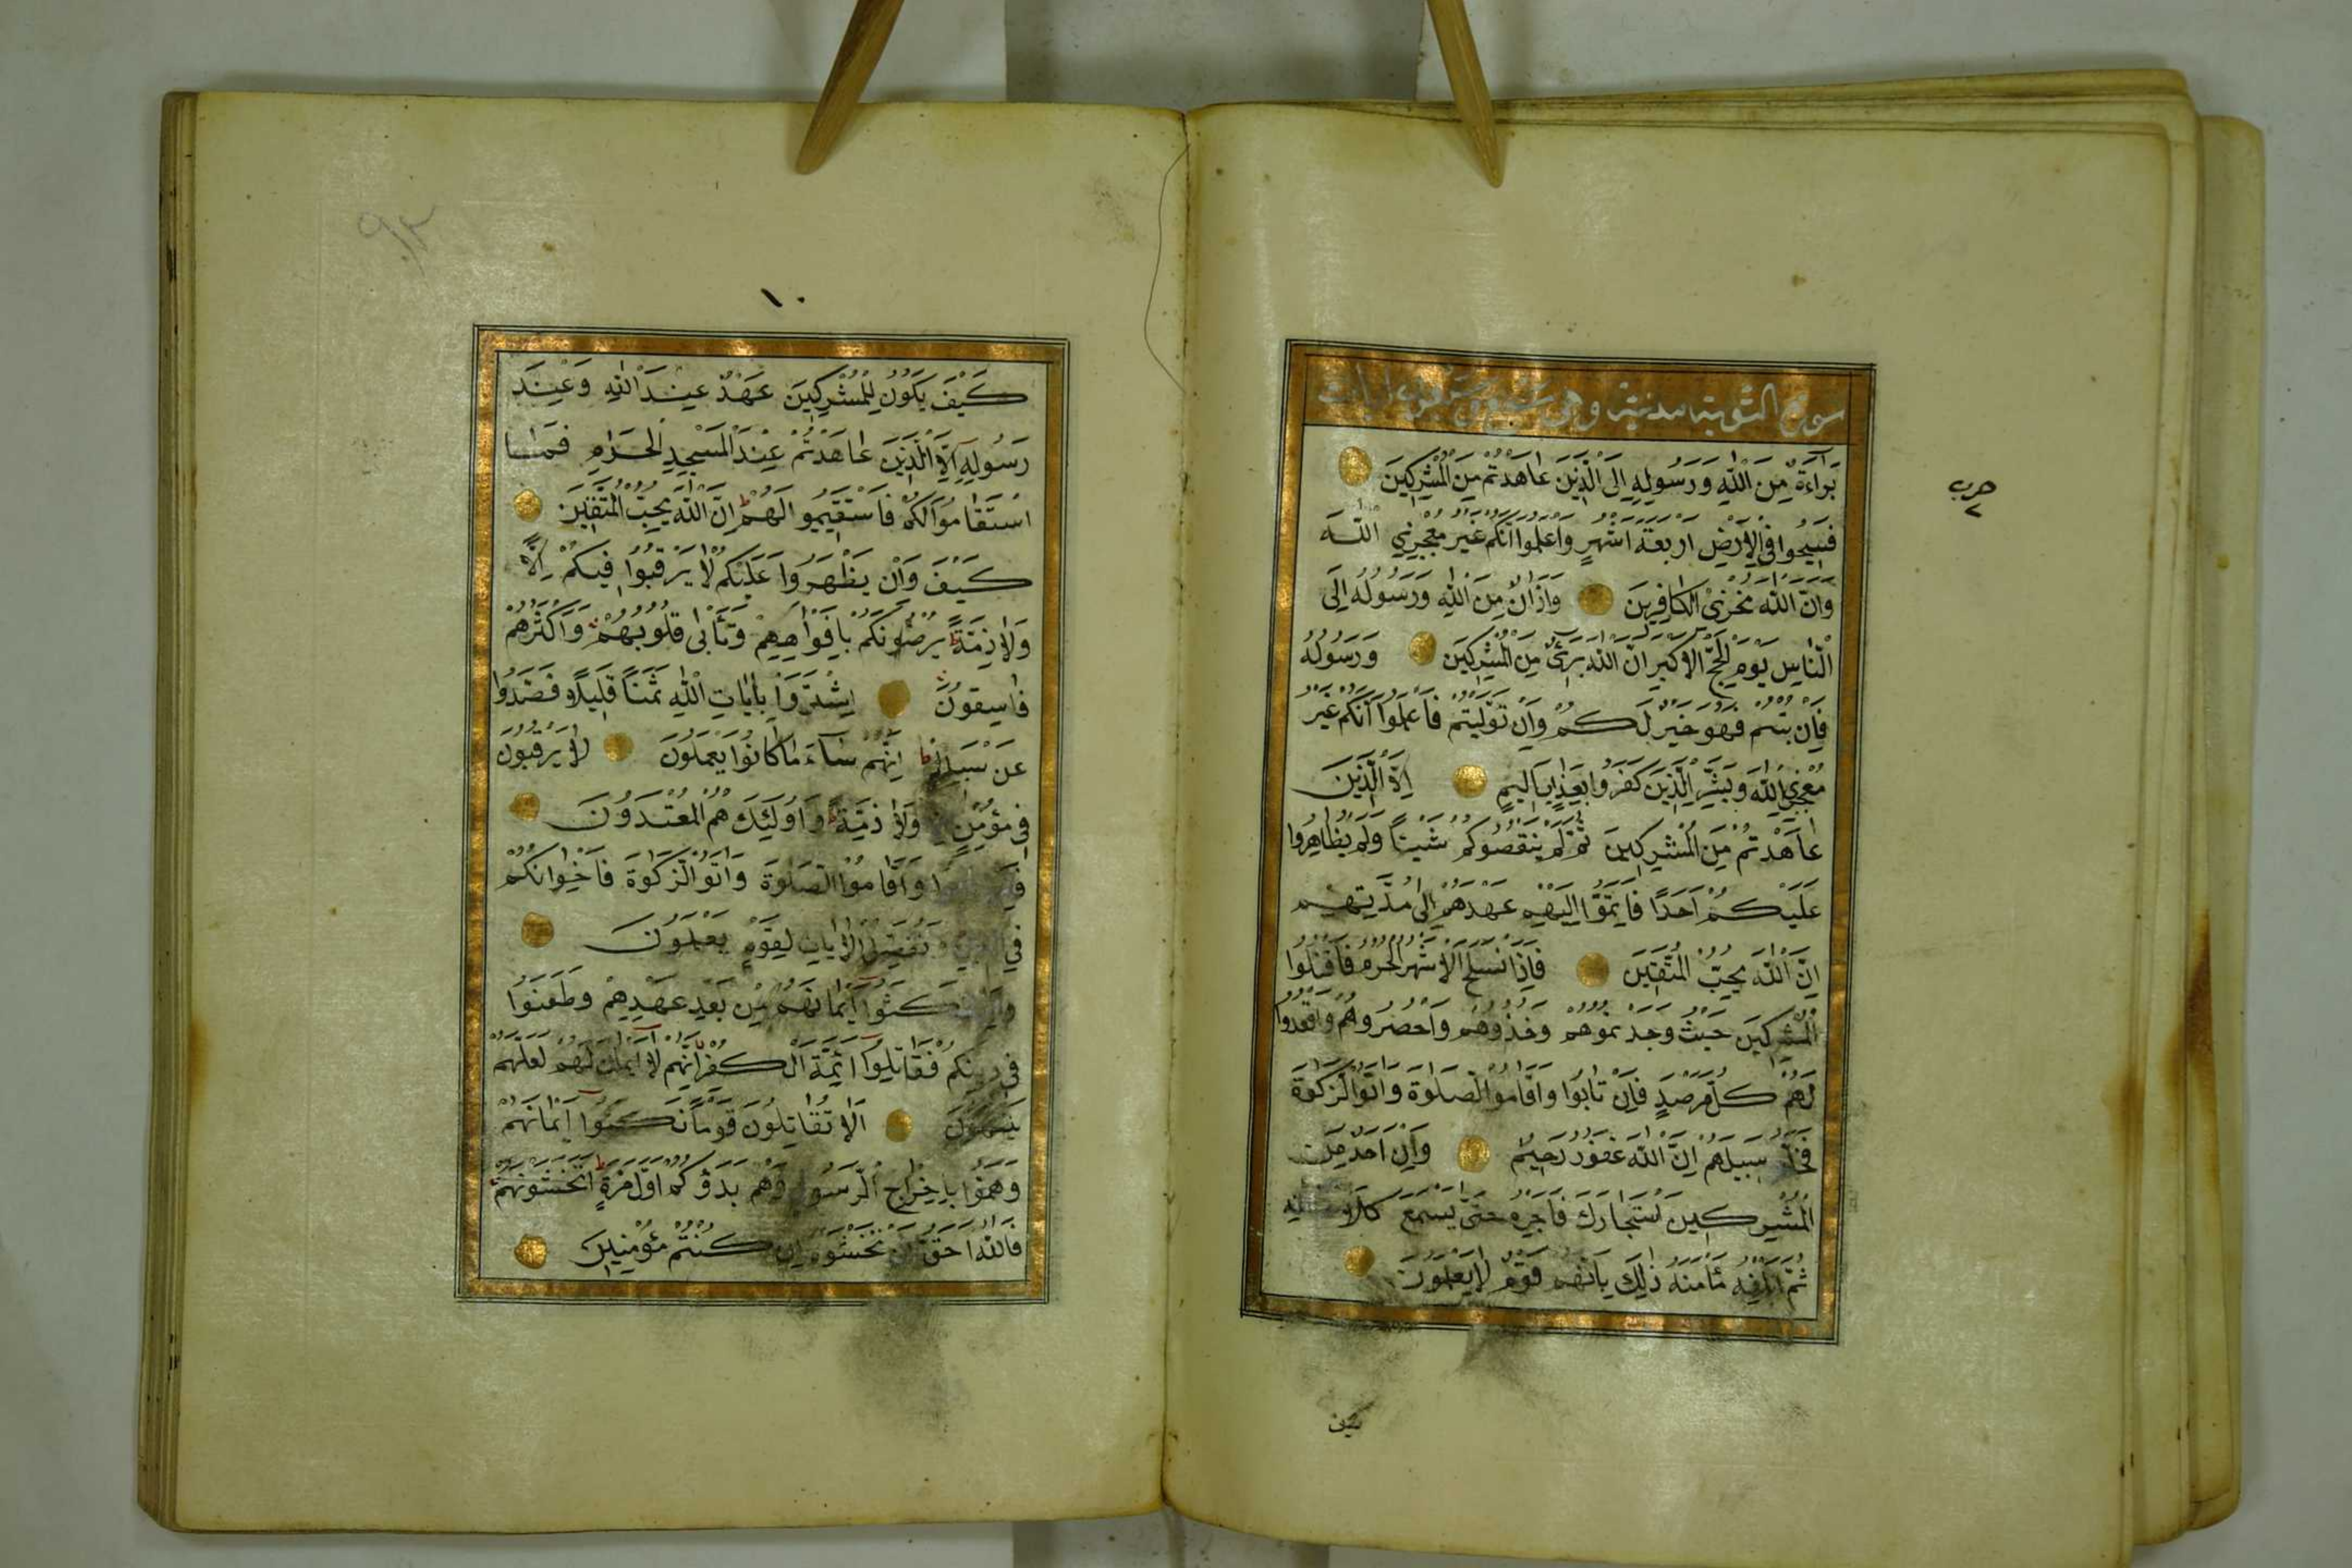 سورة التوبة مدنية وهي
بَرَاءَةٌ مِنَ اللّٰهِ وَرَسُولِهِ اِلَى الَّذِينَ عَاهَدْتُمْ مِنَ الْمُشْرِكِينَ
فَسِيحُوا فِي الْاَرْضِ اَرْبَعَةَ اَشْهُرٍ وَاعْلَمُوا اَنَّكُمْ غَيْرُ مُعْجِزِي اللّٰهِ
وَاَنَّ اللّٰهَ مُخْزِي الْكَافِرِينَ وَاَذَانٌ مِنَ اللّٰهِ وَرَسُولِهِ اِلَى
النَّاسِ يَوْمَ الْحَجِّ الْاَكْبَرِ اَنَّ اللّٰهَ بَرِيءٌ مِنَ الْمُشْرِكِينَ وَرَسُولُهُ
فَاِنْ تُبْتُمْ فَهُوَ خَيْرٌ لَكُمْ وَاِنْ تَوَلَّيْتُمْ فَاعْلَمُوا اَنَّكُمْ غَيْرُ
مُعْجِزِي اللّٰهِ وَبَشِّرِ الَّذِينَ كَفَرُوا بِعَذَابٍ اَلِيمٍ اِلَّا الَّذِينَ
عَاهَدْتُمْ مِنَ الْمُشْرِكِينَ ثُمَّ لَمْ يَنْقُصُوكُمْ شَيْئًا وَلَمْ يُظَاهِرُوا
عَلَيْكُمْ اَحَدًا فَاَتِمُّوا اِلَيْهِمْ عَهْدَهُمْ اِلَى مُدَّتِهِمْ
اِنَّ اللّٰهَ يُحِبُّ الْمُتَّقِينَ فَاِذَا انْسَلَخَ الْاَشْهُرُ الْحُرُمُ فَاقْتُلُوا
الْمُشْرِكِينَ حَيْثُ وَجَدْتُمُوهُمْ وَخُذُوهُمْ وَاحْصُرُوهُمْ وَاقْعُدُوا
لَهُمْ كُلَّ مَرْصَدٍ فَاِنْ تَابُوا وَاَقَامُوا الصَّلٰوةَ وَاٰتَوُا الزَّكٰوةَ
فَخَلُّوا سَبِيلَهُمْ اِنَّ اللّٰهَ غَفُورٌ رَحِيمٌ وَاِنْ اَحَدٌ مِنَ
الْمُشْرِكِينَ اسْتَجَارَكَ فَاَجِرْهُ حَتَّى يَسْمَعَ كَلَامَ اللّٰهِ
ثُمَّ اَبْلِغْهُ مَأْمَنَهُ ذٰلِكَ بِاَنَّهُمْ قَوْمٌ لَا يَعْلَمُونَ
كيف
حزب
٢
٩٢
١٠
كَيْفَ يَكُونُ لِلْمُشْرِكِينَ عَهْدٌ عِنْدَ اللّٰهِ وَعِنْدَ
رَسُولِهِ اِلَّا الَّذِينَ عَاهَدْتُمْ عِنْدَ الْمَسْجِدِ الْحَرَامِ فَمَا
اسْتَقَامُوا لَكُمْ فَاسْتَقِيمُوا لَهُمْ اِنَّ اللّٰهَ يُحِبُّ الْمُتَّقِينَ
كَيْفَ وَاِنْ يَظْهَرُوا عَلَيْكُمْ لَا يَرْقُبُوا فِيكُمْ اِلًّا
وَلَا ذِمَّةً يُرْضُونَكُمْ بِاَفْوَاهِهِمْ وَتَأْبَى قُلُوبُهُمْ وَاَكْثَرُهُمْ
فَاسِقُونَ اِشْتَرَوْا بِاٰيَاتِ اللّٰهِ ثَمَنًا قَلِيلًا فَصَدُّوا
عَنْ سَبِيلِهِ اِنَّهُمْ سَاءَ مَا كَانُوا يَعْمَلُونَ لَا يَرْقُبُونَ
فِي مُؤْمِنٍ وَلَا ذِمَّةً وَاُولٰئِكَ هُمُ الْمُعْتَدُونَ
وَاَقَامُوا الصَّلٰوةَ وَاٰتَوُا الزَّكٰوةَ فَاِخْوَانُكُمْ
فِي الدِّينِ وَنُفَصِّلُ الْاٰيَاتِ لِقَوْمٍ يَعْلَمُونَ
وَاِنْ نَكَثُوا اَيْمَانَهُمْ مِنْ بَعْدِ عَهْدِهِمْ وَطَعَنُوا
فِي دِينِكُمْ فَقَاتِلُوا اَئِمَّةَ الْكُفْرِ اِنَّهُمْ لَا اَيْمَانَ لَهُمْ لَعَلَّهُمْ
يَنْتَهُونَ اَلَا تُقَاتِلُونَ قَوْمًا نَكَثُوا اَيْمَانَهُمْ
وَهَمُّوا بِاِخْرَاجِ الرَّسُولِ وَهُمْ بَدَؤُكُمْ اَوَّلَ مَرَّةٍ اَتَخْشَوْنَهُمْ
فَاللّٰهُ اَحَقُّ اَنْ تَخْشَوْهُ اِنْ كُنْتُمْ مُؤْمِنِينَ